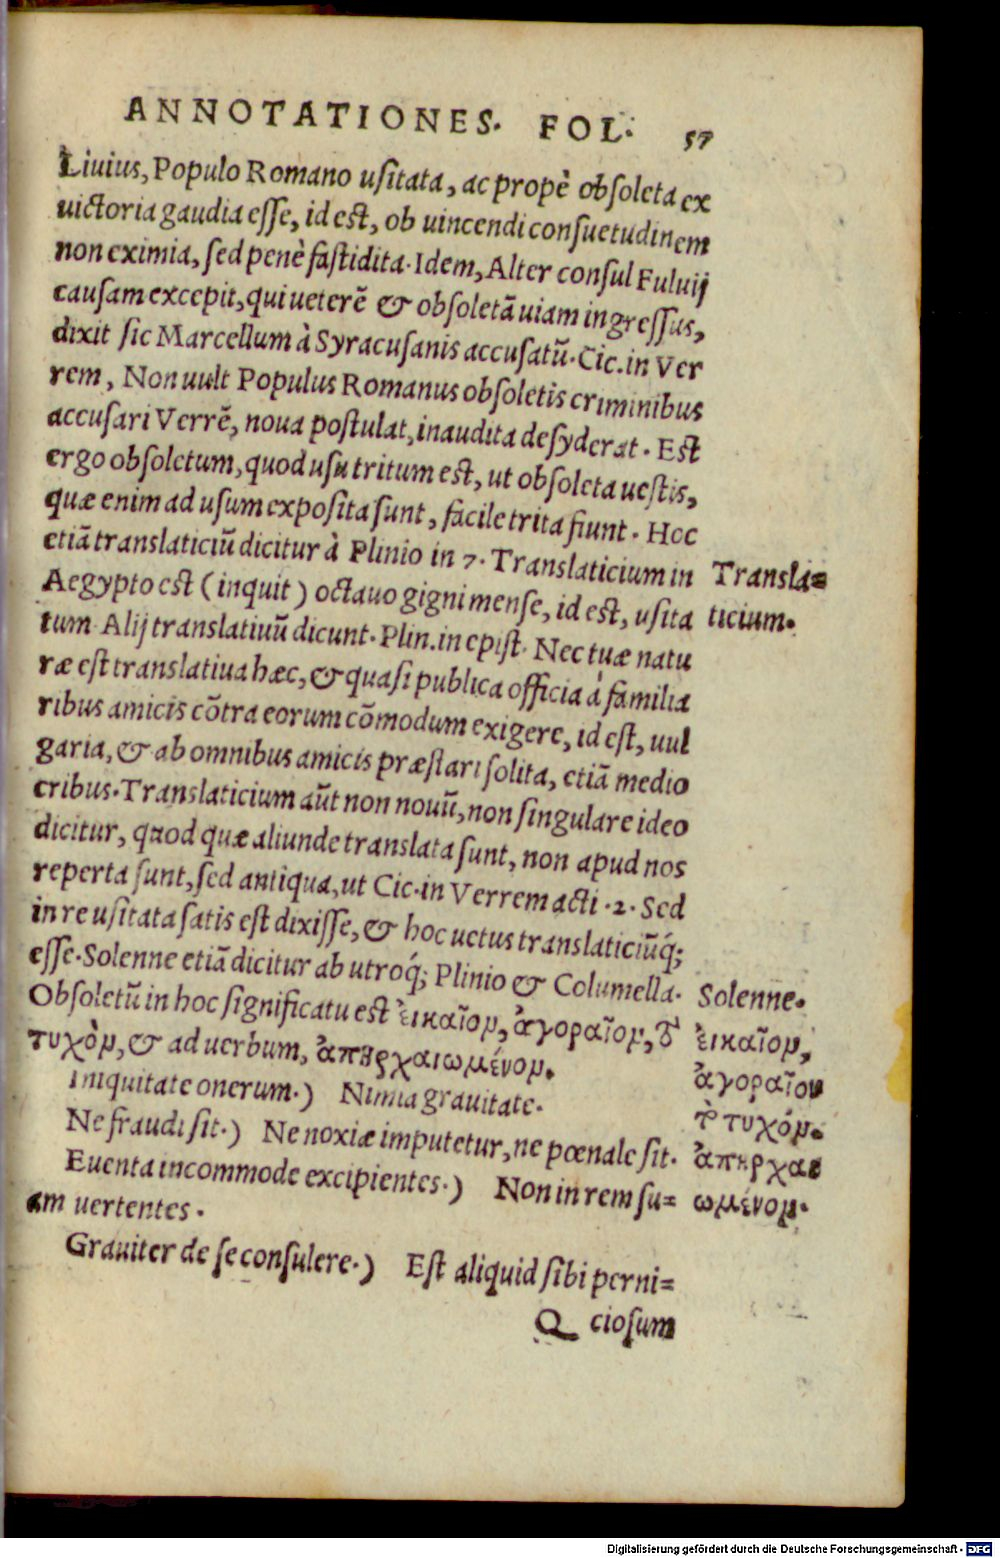 ANNOTATIONES. FOL. 57
Liuius, Populo Romano usitata, ac propè obsoleta ex
uictoria gaudia esse, id est, ob uincendi consuetudinem
non eximia, sed penè fastidita. Idem, Alter consul Fuluij
causam excepit, qui ueterẽ & obsoletã uiam ingressus,
dixit sic Marcellum à Syracusanis accusatũ. Cic. in Ver
rem, Non uult Populus Romanus obsoletis criminibus
accusari Verrẽ, noua postulat, inaudita desyderat. Est
ergo obsoletum, quod usu tritum est, ut obsoleta uestis,
quæ enim ad usum exposita sunt, facile trita fiunt. Hoc
etiã translaticiũ dicitur à Plinio in 7. Translaticium in
Transla=
Aegypto est (inquit) octauo gigni mense, id est, usita
ticium.
tum. Alij translatiuũ dicunt. Plin. in epist. Nec tuæ natu
ræ est translatiua hæc, & quasi publica officia à familia
ribus amicis cõtra eorum cõmodum exigere, id est, uul
garia, & ab omnibus amicis præstari solita, etiã medio
cribus. Translaticium aũt non nouũ, non singulare ideo
dicitur, quod quæ aliunde translata sunt, non apud nos
reperta sunt, sed antiqua, ut Cic. in Verrem acti. 2. Sed
in re usitata satis est dixisse, & hoc uetus translaticiũq́;
esse. Solenne etiã dicitur ab utroq́; Plinio & Columella.
Solenne.
Obsoletũ in hoc significatu est ἐικαῖομ, ἀγοραῖομ, τὸ
ἐικαῖομ,
τυχὸμ, & ad uerbum, ἀπηρχαιωμένομ.
ἀγοραῖομ
Iniquitate onerum.) Nimia grauitate.
τὸ τυχόμ.
Ne fraudi sit.) Ne noxiæ imputetur, ne pœnale sit.
ἀπηρχαι
Euenta incommode excipientes.) Non in rem su=
ωμένομ.
am uertentes.
Grauiter de se consulere.) Est aliquid sibi perni=
Q ciosum
Digitalisierung gefördert durch die Deutsche Forschungsgemeinschaft - DFG